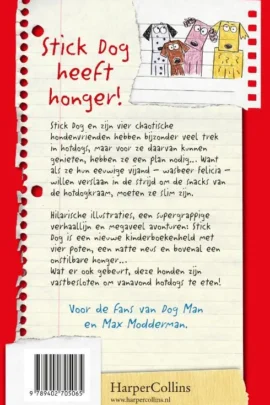 Stick Dog
heeft
honger!
Stick Dog en zijn vier chaotische
hondenvrienden hebben bijzonder veel trek
in hotdogs, maar voor ze daarvan kunnen
genieten, hebben ze een plan nodig... Want
als ze hun eeuwige vijand – wasbeer Felicia –
willen verslaan in de strijd om de snacks van
de hotdogkraam, moeten ze slim zijn.
Hilarische illustraties, een supergrappige
verhaallijn en megaveel avonturen: Stick
Dog is een nieuwe kinderboekenheld met
vier poten, een natte neus en bovenal een
onstilbare honger...
Wat er ook gebeurt, deze honden zijn
vastbesloten om vanavond hotdogs te eten!
Voor de fans van Dog Man
en Max Modderman.
9 789402 705065
HarperCollins
www.harpercollins.nl